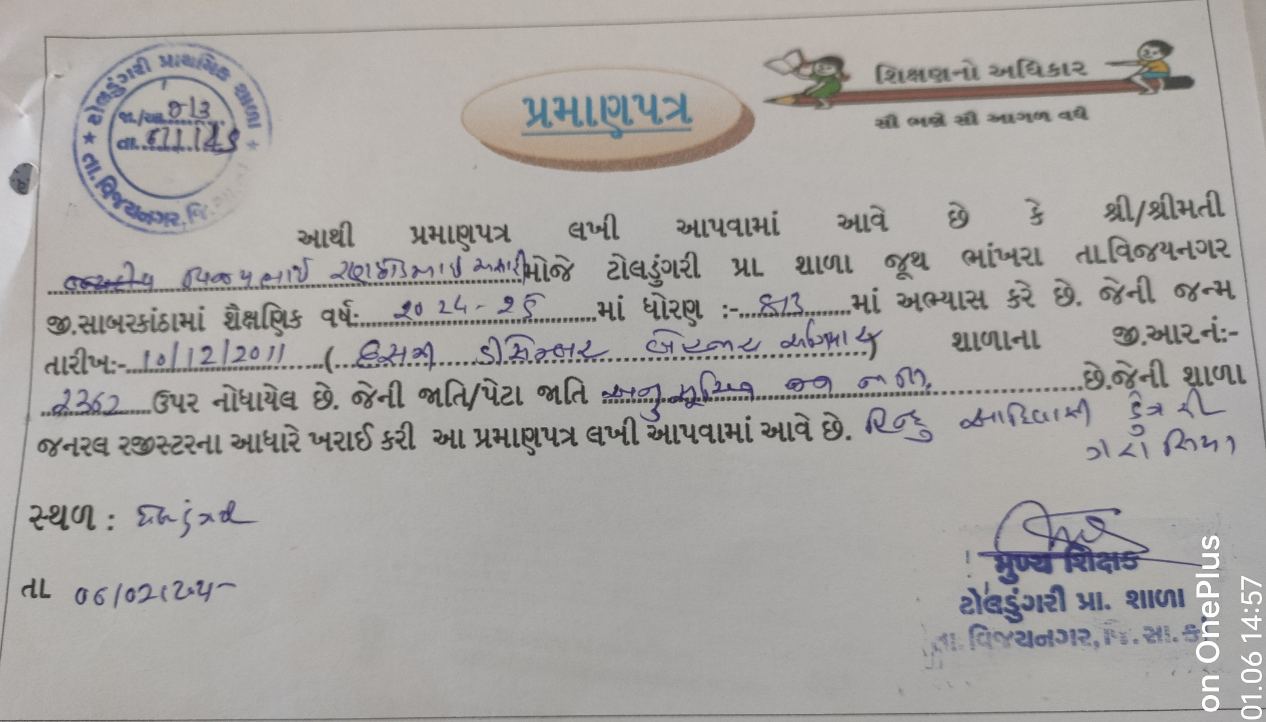 ટોલડુંગરી પ્રાથમિક શાળા
તા. વિજયનગર, જિ.
જા./આ.
તા.
પ્રમાણપત્ર
શિક્ષણનો અધિકાર
સૌ ભણે સૌ આગળ વધે
આથી પ્રમાણપત્ર લખી આપવામાં આવે છે કે શ્રી/શ્રીમતી
મોજે ટોલડુંગરી પ્રા શાળા જૂથ ભાંખરા તા.વિજયનગર
જી.સાબરકાંઠામાં શૈક્ષણિક વર્ષ:- ૨૦૨૪-૨૫ માં ધોરણ :- ૭ માં અભ્યાસ કરે છે. જેની જન્મ
તારીખ:- 10/12/2011 ( દસમી ડીસેમ્બર બે હજાર અગિયાર ) શાળાના જી.આર.નં:-
2362 ઉપર નોધાયેલ છે. જેની જાતિ/પેટા જાતિ અનુસૂચિત જન જાતિ છે.જેની શાળા
જનરલ રજીસ્ટરના આધારે ખરાઈ કરી આ પ્રમાણપત્ર લખી આપવામાં આવે છે. હિન્દુ આદિવાસી ડુંગરી
ગરાસિયા
સ્થળ :
તા 06/02/૨૫
મુખ્ય શિક્ષક
ટોલડુંગરી પ્રા. શાળા
તા. વિજયનગર, જિ. સા.કાં
on OnePlus
01.06 14:57